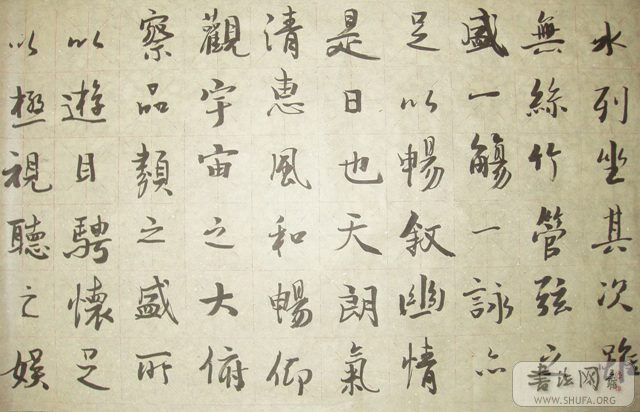 水列坐其次雖
無絲竹管弦之
盛一觴一詠亦
足以暢叙幽情
是日也天朗氣
清惠風和暢仰
觀宇宙之大俯
察品類之盛所
以遊目騁懷足
以極視聽之娛
书法网
WWW.SHUFA.ORG